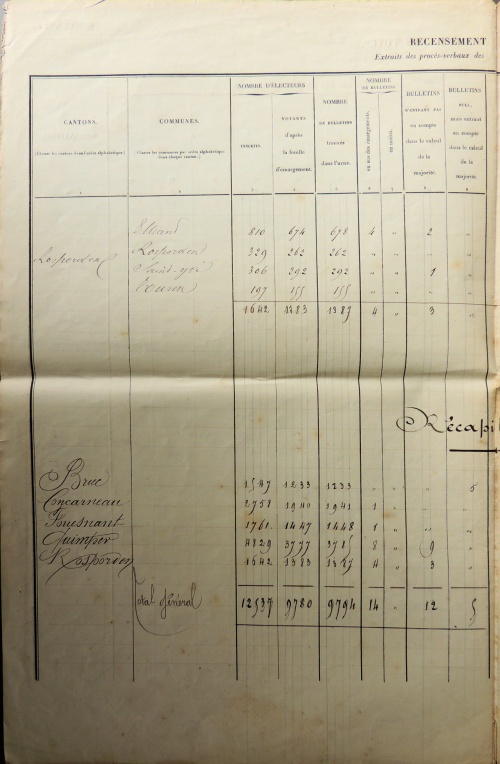 RECENSEMENT
Extraits des procès-verbaux des
CANTONS.
(Classer les cantons dans l'ordre alphabétique.)
COMMUNES.
(Classer les communes par ordre alphabétique dans chaque canton.)
NOMBRE D'ÉLECTEURS
INSCRITS.
VOTANTS d'après la feuille d'émargement.
NOMBRE DE BULLETINS trouvés dans l'urne.
NOMBRE DE BULLETINS
en sus des émargements.
en moins.
BULLETINS N'ENTRANT PAS en compte dans le calcul de la majorité.
BULLETINS NULS, mais entrant en compte dans le calcul de la majorité.
Elliant 810 674 678 4 " 2
Rosporden Rosporden 329 262 262 " " "
Saint-Yvi 306 292 292 " " 1
Tourch 197 155 155 " " "
1642 1383 1387 4 " 3 "
Récapi
Briec 1547 1233 1233 " " " 5
Concarneau 2758 1940 1941 1 " "
Fouesnant 1761 1447 1448 1 " "
Quimper 4829 3777 3785 8 " 9 "
Rosporden 1642 1383 1387 4 " 3 "
Total Général 12537 9780 9794 14 " 12 5